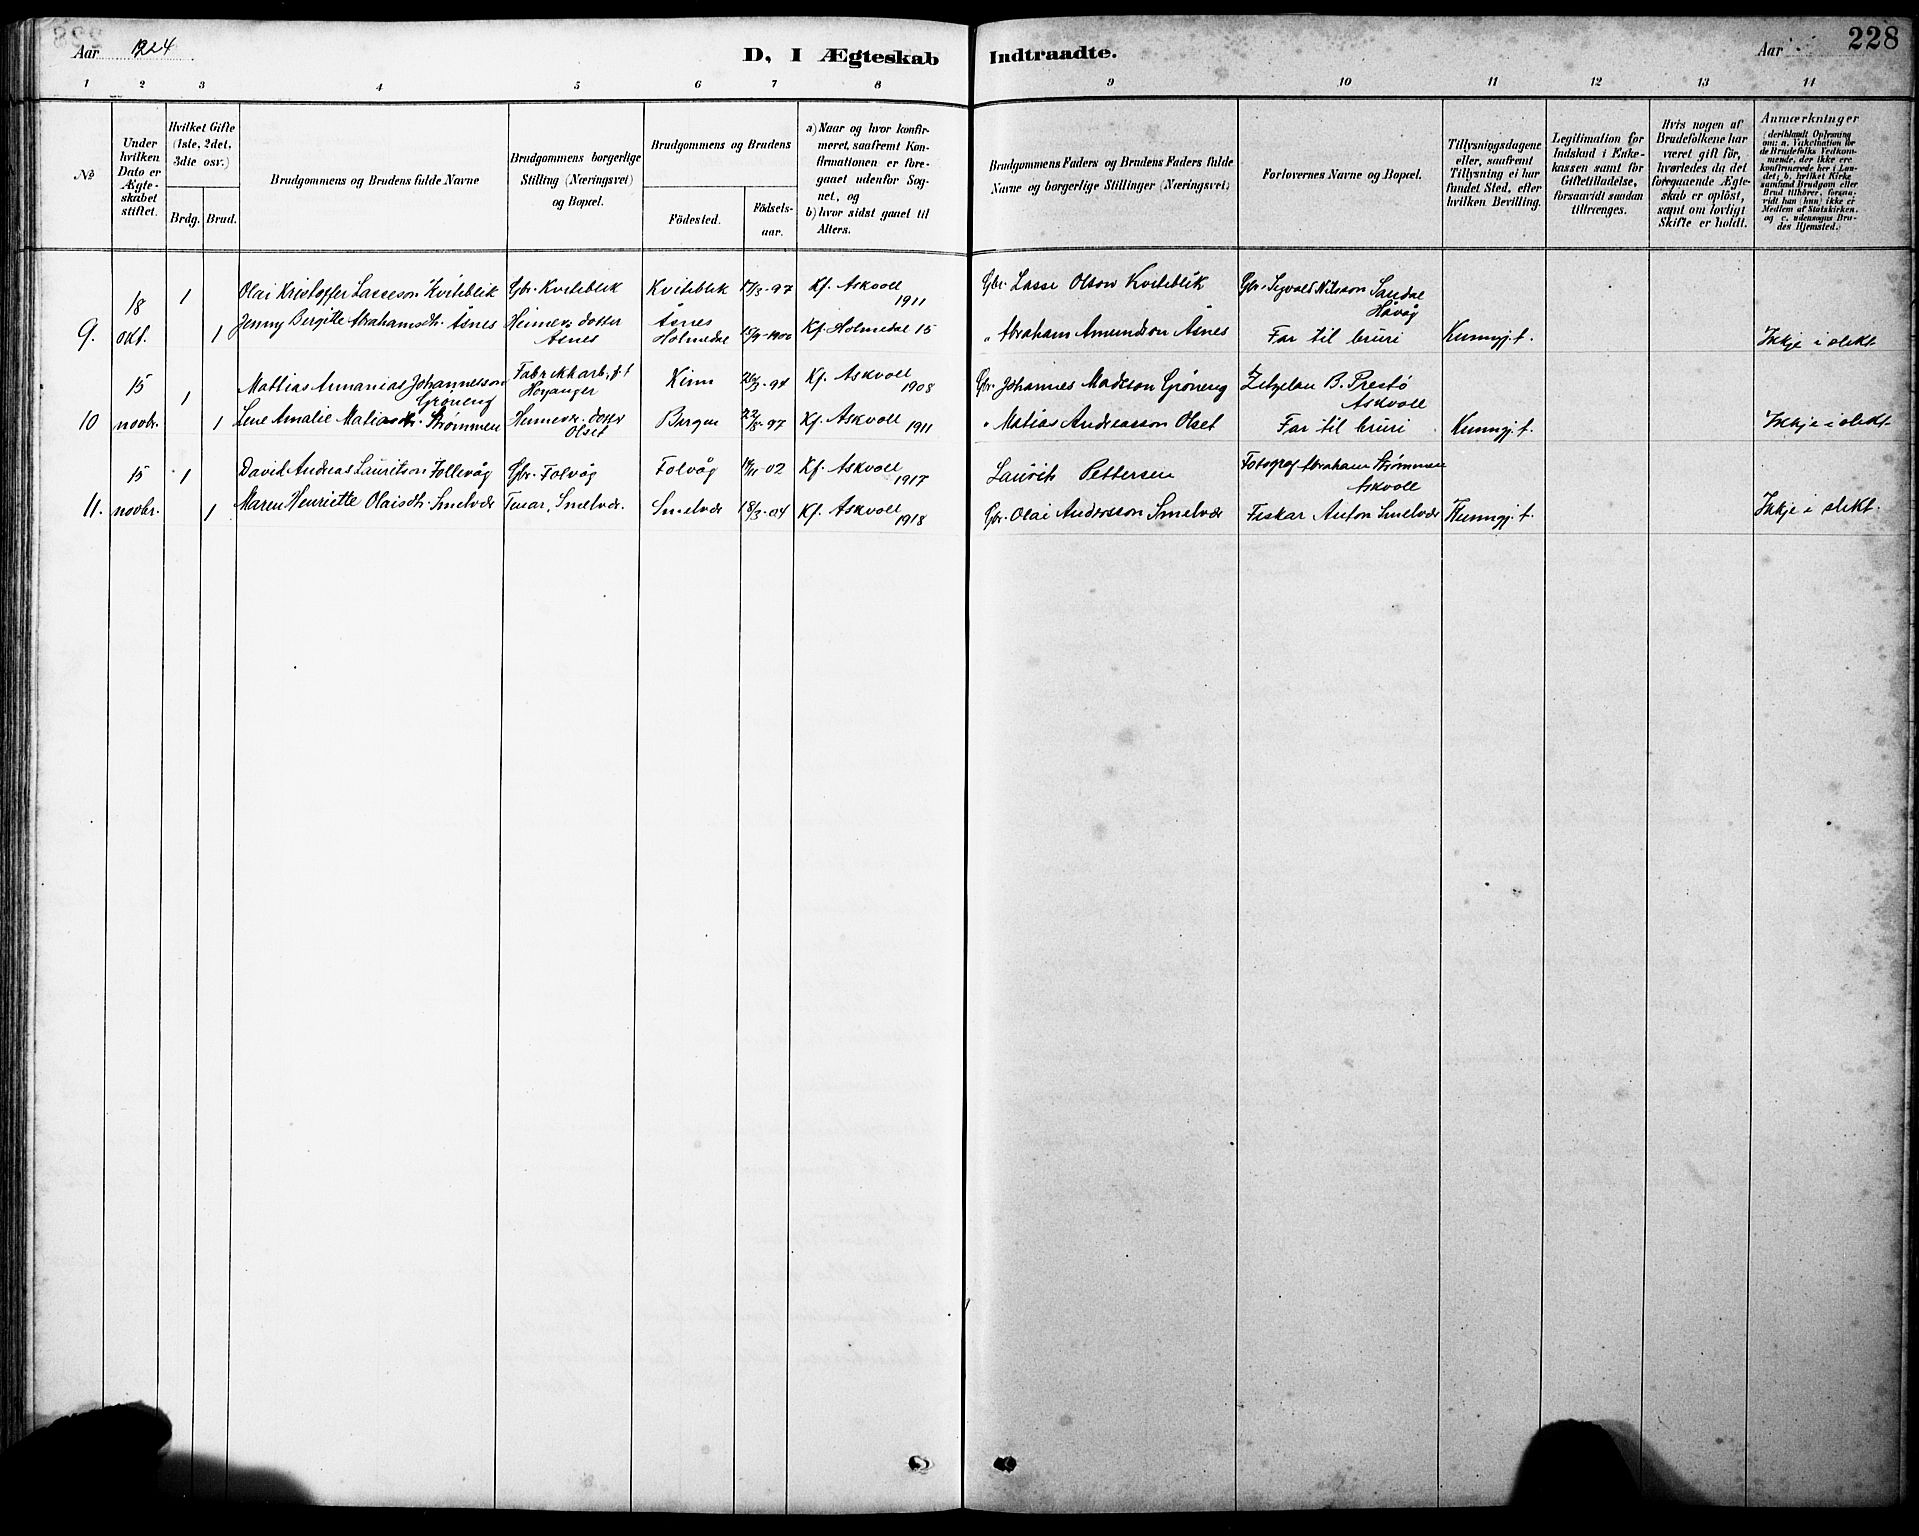 Aar 1924
D, I Ægteskab
Indtraadte.
Aar
228
1 2 3 4 5 6 7 8 9 10 11 12 13 14
No
Under
hvilken
Dato er
Ægte-
skabet
stiftet.
Hvilket Gifte
(1ste, 2det,
3die osv.)
Brdg. Brud.
Brudgommens og Brudens fulde Navne
Brudgommens borgerlige
Stilling (Næringsvei)
og Bopæl.
Brudgommens og Brudens
Födested.
Födsels-
aar.
a) Naar og hvor konfir-
meret, saafremt Kon-
firmationen er fore-
gaaet udenfor Sog-
net, og
b) hvor sidst gaaet til
Alters.
Brudgommens Faders og Brudens Faders fulde
Navne og borgerlige Stillinger (Næringsvei)
Forlovernes Navne og Bopæl.
Tillysningsdagene
eller, saafremt
Tillysning ei har
fundet Sted, efter
hvilken Bevilling.
Legitimation for
Indskud i Enke-
kassen samt for
Giftetilladelse,
forsaavidt saadan
tiltrænges.
Hvis nogen af
Brudefolkene har
været gift för,
hvorledes da det
foregaaende Ægte-
skab er oplöst,
samt om lovligt
Skifte er holdt.
Anmærkninger
(deriblandt Oplysning
om: a. Vakcination for
de Brudefolks Vedkom-
mende, der ikke ere
konfirmerede her i Lan-
det; b. hvilket Kirke-
samfund Brudgom eller
Brud tilhörer, forsaa-
vidt han (hun) ikke er
Medlem af Statskirken,
og c. udensogns Bru-
des Hjemsted.)
18 1 Olai Kristoffer Lasseson Kviteblik Gbr. Kviteblik Kviteblik 17/3-97 Kf. Askvoll 1911 Gbr. Lasse Olson Kviteblik Gbr. Sigvald Nilsson Sandal
Håvåg
9. okt. 1 Jenny Bergitte Abrahamsdtr. Åsnes Heimev. dotter Åsnes Åsnes Holmedal 15/9-1900 Kf. Holmedal 15 " Abraham Amundson Åsnes Far til bruri Kunngj. t. Ikkje i slekt
15 1 Mattias Annanias Johannesson Grøneng Fabrikkarb. Høyanger Kinn 26/3-94 Kf. Askvoll 1908 Gbr. Johannes Madsson Grøneng B. Prestø
Askvoll
10 novbr. 1 Lene Amalie Matiasdtr. Strømmen Heimev. dotter Olset Bergen 22/8-97 Kf. Askvoll 1911 " Matias Andreasson Olset Far til bruri Kunngj. t. Ikkje i slekt
15 1 David Andreas Lauritson Follevåg Gbr. Folvåg Folvåg -02 Kf. Askvoll 1917 Laurits Pettersen Fotograf Abraham Strømmen
Askvoll
11. novbr. 1 Maren Henriette Olaisdtr. Smelvær Tenar, Smelvær. Smelvær 18/3-04 Kf. Askvoll 1918 Gbr. Olai Andersson Smelvær Fiskar Anton Smelvær Kunngj. t. Ikkje i slekt.